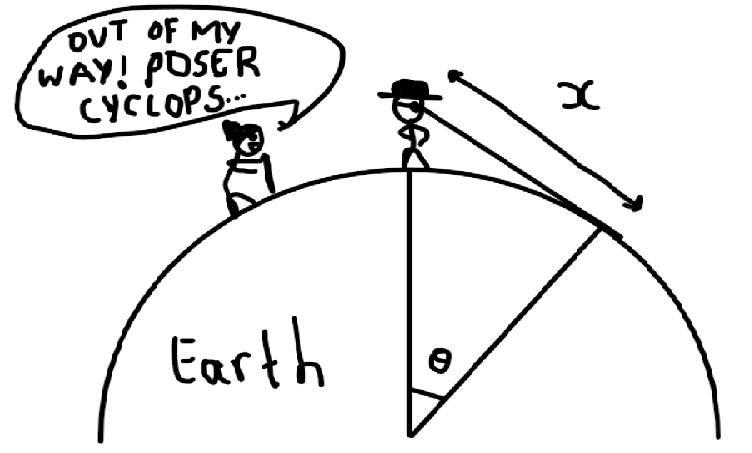 OUT OF MY
WAY! POSER
CYCLOPS...
x
θ
Earth